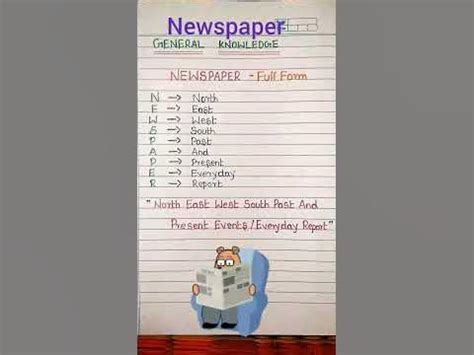 Newspaper
GENERAL KNOWLEDGE
NEWSPAPER - Full Form
N → North
E → East
W → West
S → South
P → Past
A → And
P → Present
E → Everyday
R → Report
"North East West South Past And
Present Events/Everyday Report"